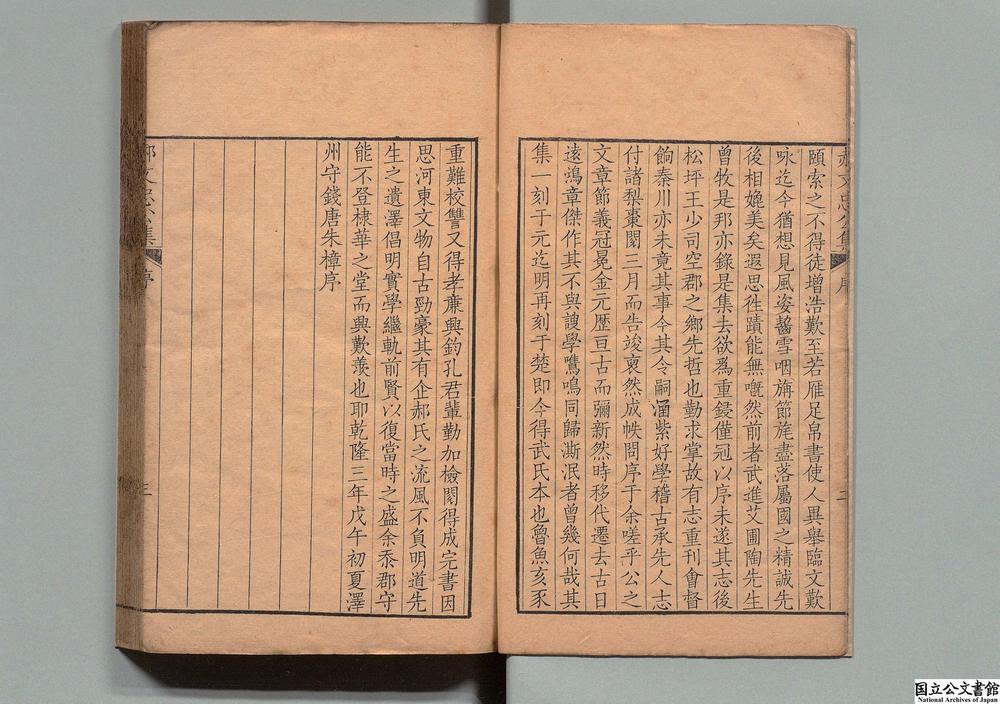 郝文忠公集 序
頤索之不得徒增浩歎至若雁足帛書使人異舉臨文歎
咏迄今猶想見風姿齧雪咽旃節旄盡落屬國之精誠先
後相媲美矣遐思徃蹟能無嘅然前者武進艾圃陶先生
曾牧是邦亦錄是集去欲爲重鋟僅冠以序未遂其志後
松坪王少司空郡之鄉先哲也勤求掌故有志重刊會督
餉秦川亦未竟其事今其令嗣涵紫好學稽古承先人志
付諸梨棗閱三月而告竣裒然成帙問序于余嗟乎公之
文章節義冠冕金元歷亘古而彌新然時移代遷去古日
遠鴻章傑作其不與謏學鷕鳴同歸澌泯者曾幾何哉其
集一刻于元迄明再刻于楚即今得武氏本也魯魚亥豕
重難校讐又得孝廉興釣孔君輩勤加檢閱得成完書因
思河東文物自古勁豪其有企郝氏之流風不負明道先
生之遺澤倡明實學繼軌前賢以復當時之盛余忝郡守
能不登棣華之堂而興歎羨也耶乾隆三年戊午初夏澤
州守錢唐朱樟序
郝文忠公集 序 三
国立公文書館
National Archives of Japan